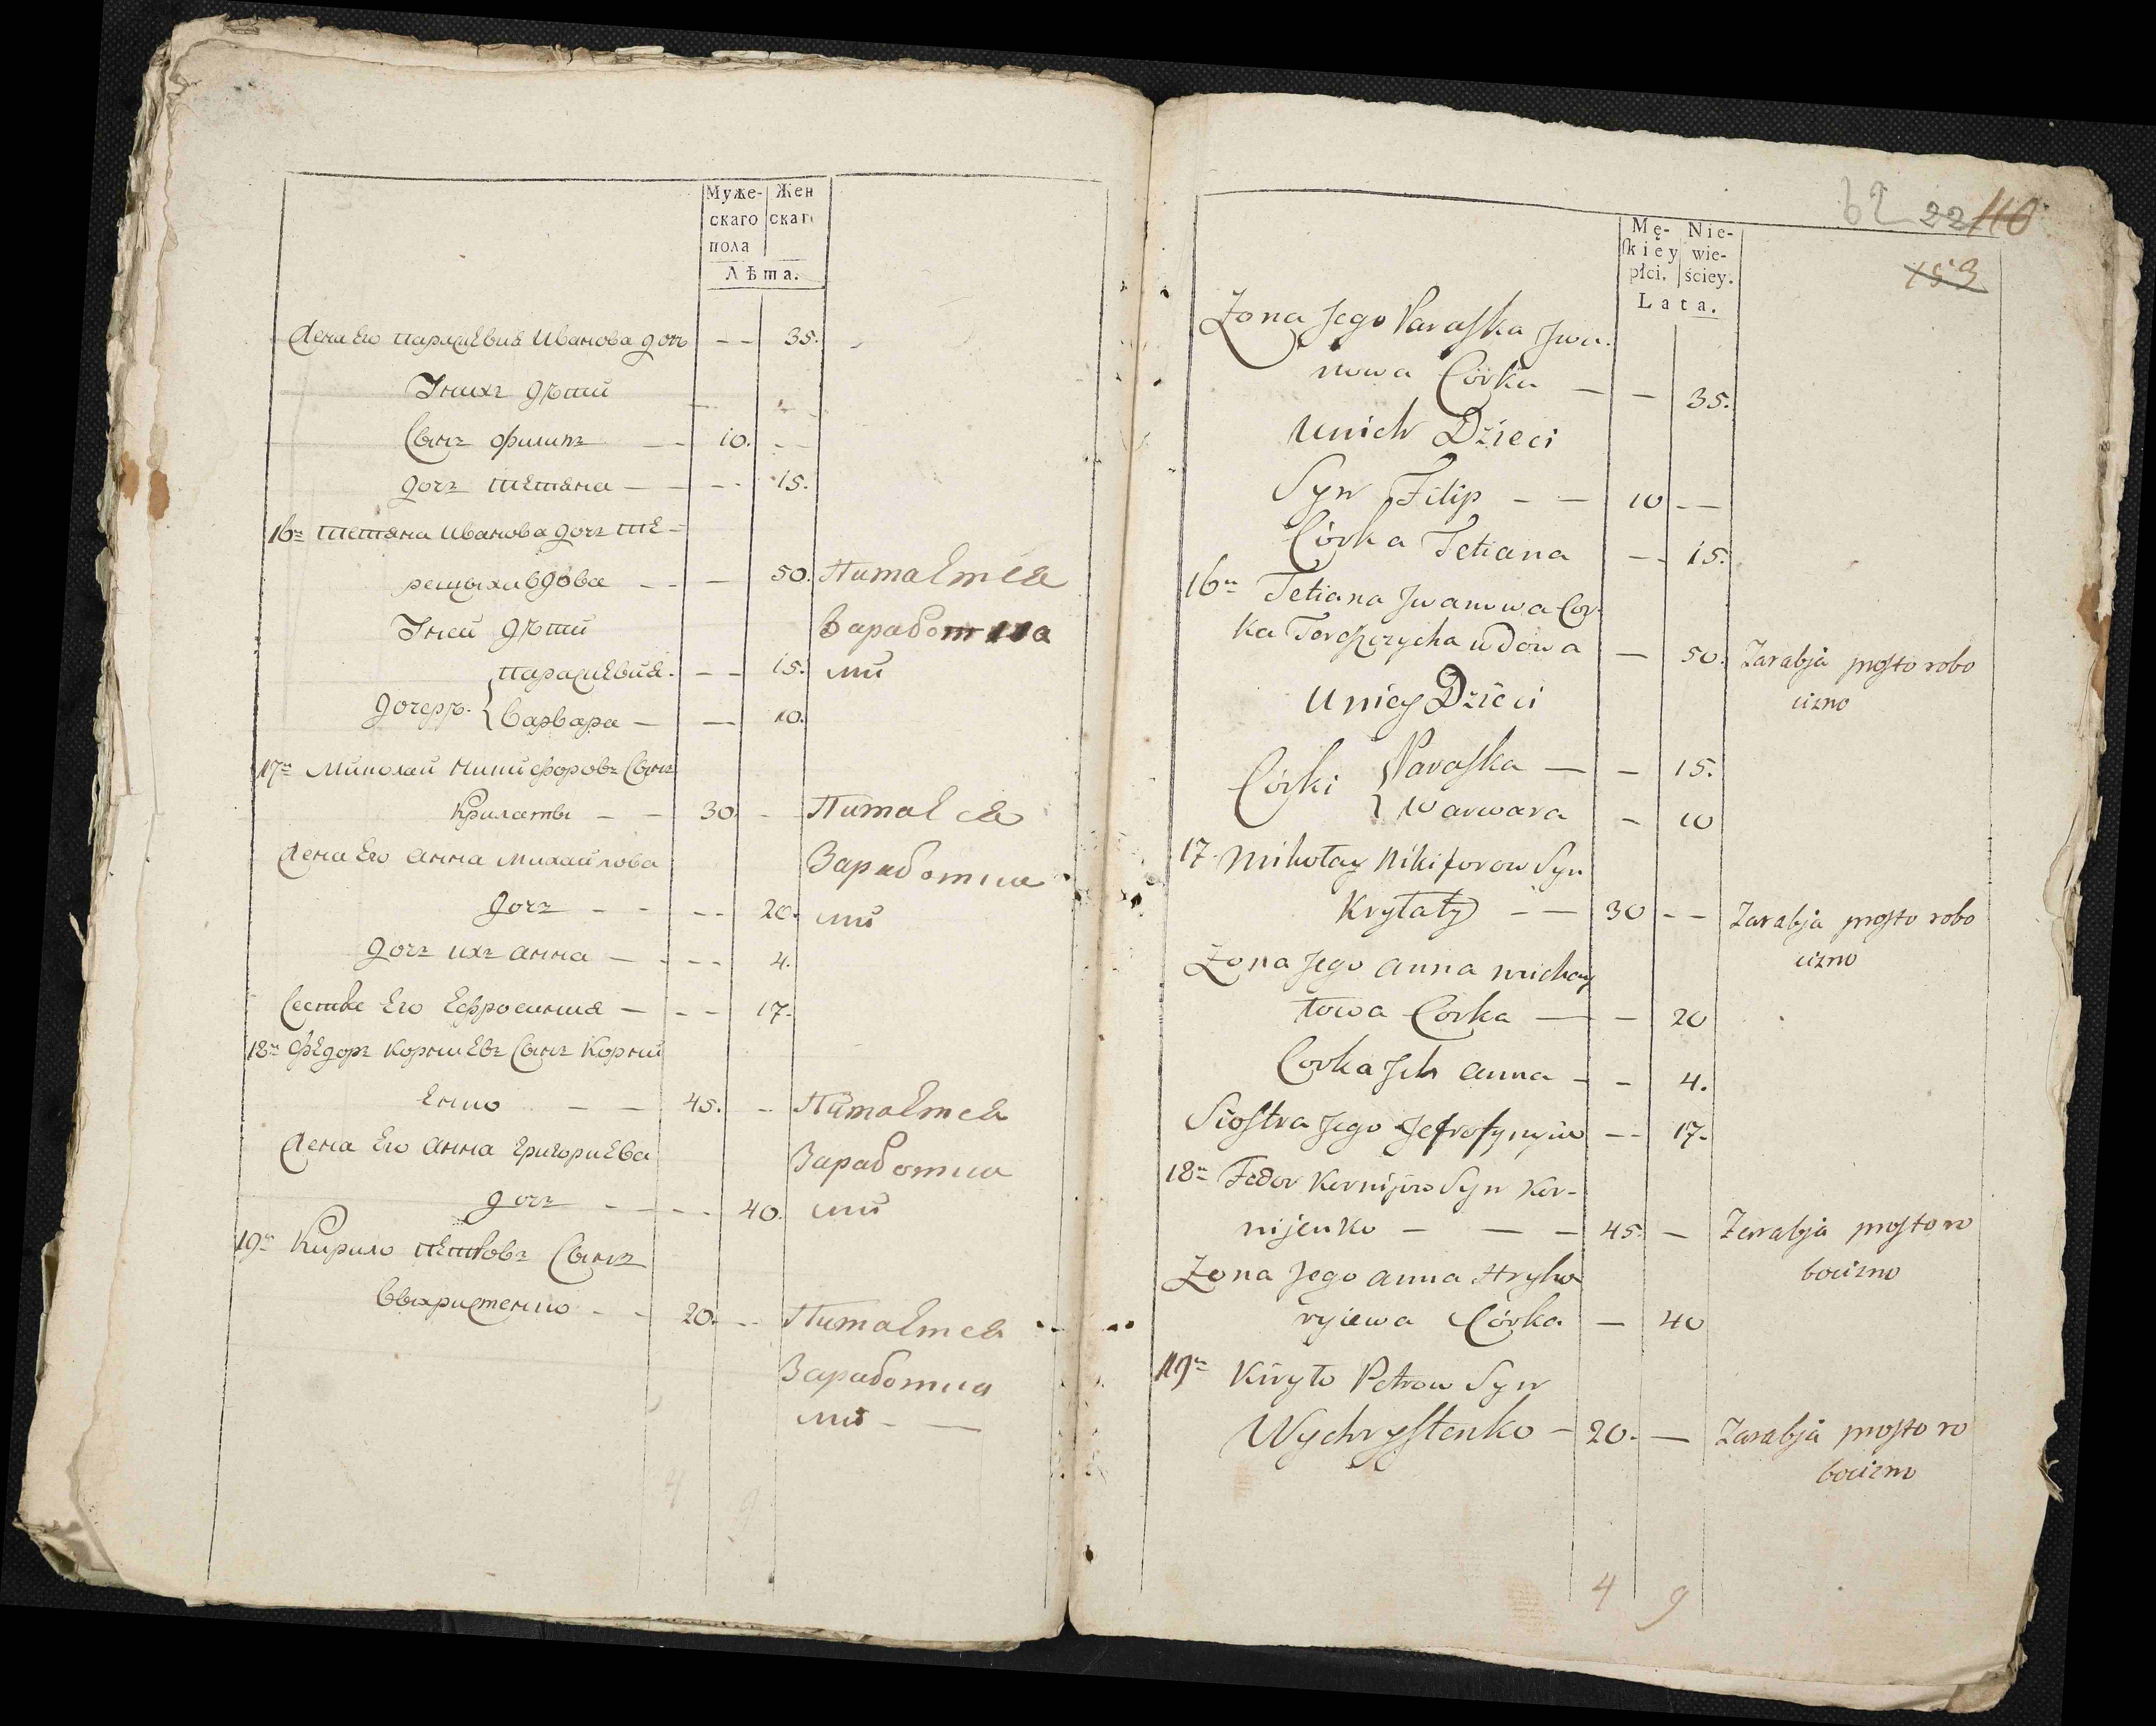 Муже- Жен
скаго скаго
пола
Лѣта.
Жена Его параскевия Иванова дочь - - 35.
Унихъ дѣти
Сынъ филипъ - - 10. - -
дочь тетяна - - - - 15.
16ъ тетяна Иванова дочь те-
рещиха вдова - - - 50. Питается
Уней дѣти Заработка
параскевия. - - 15. ми
дочери. { варвара - - 10.
17ъ миколай никифоровъ Сынъ
Крилаты - - 30. - Питается
Жена Его анна михайлова Заработка
дочь - - - - 20. ми
дочь ихъ анна - - - - 4.
Сестра Его Ефросиния - - - 17.
18ъ Федоръ корниевъ Сынъ Корний
Енко - - 45. - Питается
Жена Его анна григориева Заработка
дочь - - - - 40. ми
19ъ Кирило петровъ Сынъ
Выхристенко - - 20. - - Питается
Заработка
ми - -
4 9
62 22 110
Mę- Nie-
skiey wie-
płci. ściey.
Lata.
153
Żona Jego Paraska Jwa-
nowa Córka - - 35.
Unich Dzieci
Syn Filip - - 10 - -
Córka Tetiana - - 15.
16n Tetiana Jwanowa Cor-
ka wdowa - 50. Zarabja prosto robo
cizno
Uniey Dzieci
Córki { Paraska - - 15.
{ Warwara - 10
17. Mikołay Nikiforow Syn
Kryłaty - - 30 - - Zarabja prosto robo
cizno
Żona Jego anna michay
łowa Corka - - 20
Corka Jch anna - - 4.
Siostra Jego Jefrosynyia - - 17.
18n Fedor Kornijow Syn Kor-
nijenko - - - 45. - Zarabja prosto ro
bocizno
Żona Jego anna Hryho
ryiewa Córka - 40
19n Kiryło Petrow Syn
Wychrystenko - 20. - Zarabja prosto ro
bocizno
4 9